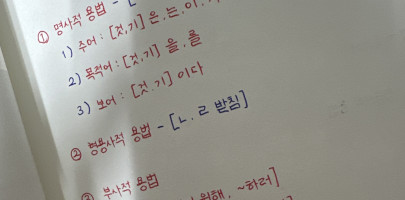 ① 명사적 용법 -
1) 주어 : [것, 기] 은, 는, 이
2) 목적어 : [것, 기] 을, 를
3) 보어 : [것, 기] 이다
② 형용사적 용법 - [ㄴ, ㄹ 받침]
③ 부사적 용법
위해, ~하러]